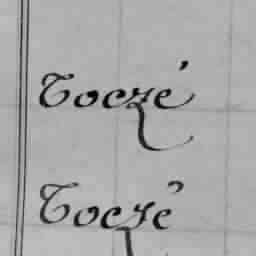 Toczé
Toczé